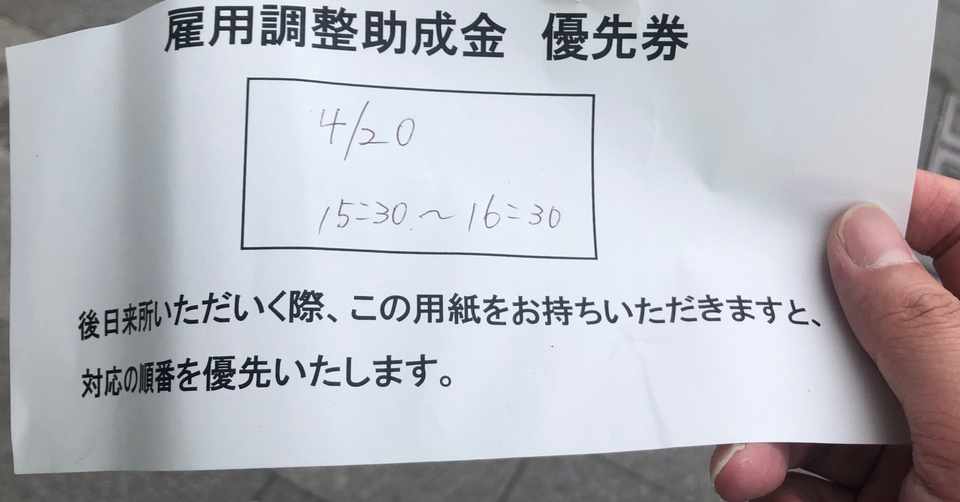 雇用調整助成金 優先券
4/20
15:30.〜16:30
後日来所いただいく際、この用紙をお持ちいただきますと、
対応の順番を優先いたします。